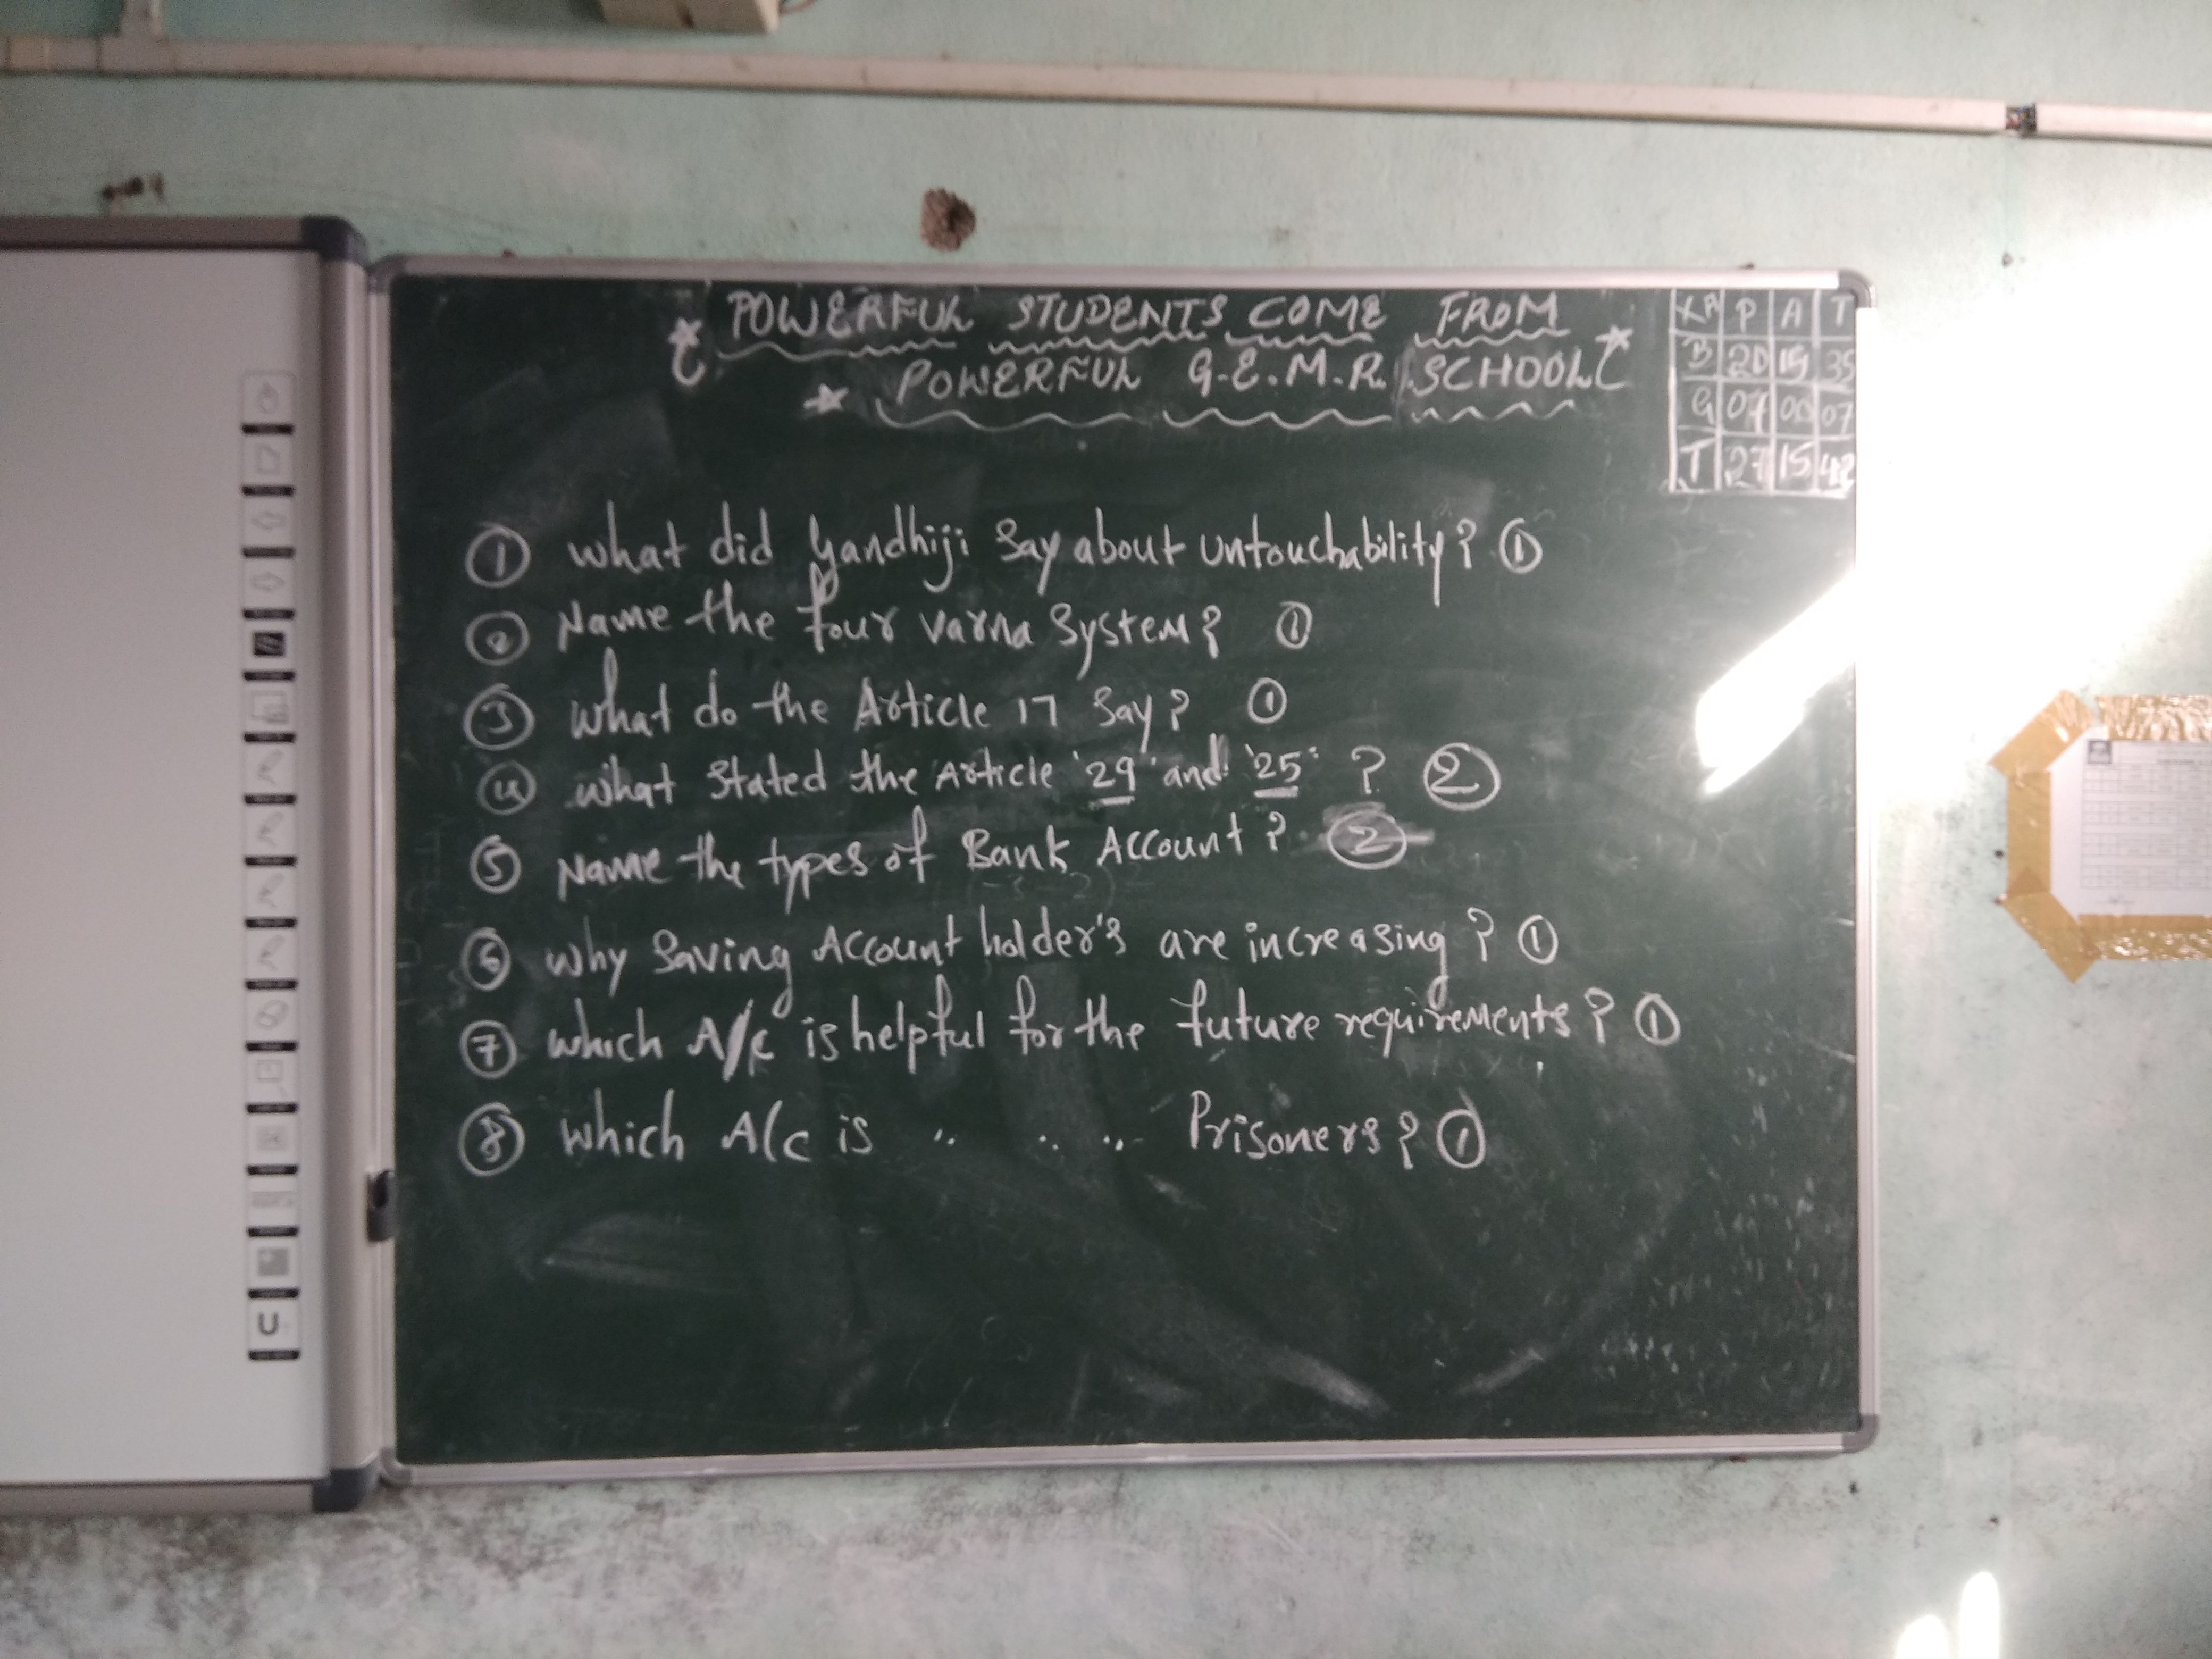 POWERFUL STUDENTS COME FROM
POWERFUL G.E.M.R. SCHOOL
XA P A T
B 20 15 35
G 07 00 07
T 27 15 42
① What did Gandhiji Say about untouchability? ①
② Name the four varna System? ①
③ What do the Article 17 Say? ①
④ What Stated the Article '29' and '25' ? ②
⑤ Name the types of Bank Account? ②
⑥ Why Saving Account holder's are increasing? ①
⑦ Which A/c is helpful for the future requirements? ①
⑧ Which A/c is ,, ,, ,, Prisoners? ①